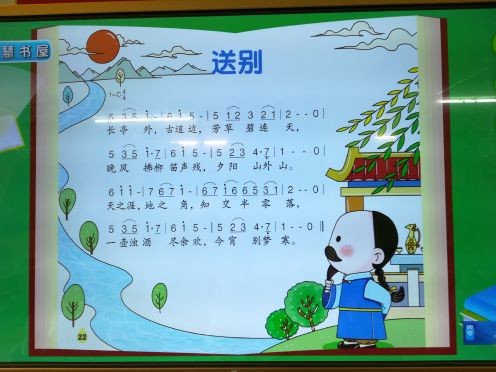 慧书屋
送别
1=C 4/4
5 3 5 1·7 | 6 1 5 - | 5 1 2 3 2 1 | 2 - - 0 |
长亭 外，古道边，芳草 碧连 天，
5 3 5 1·7 | 6 1 5 - | 5 2 3 4·7 | 1 - - 0 |
晚风 拂柳 笛声残，夕阳 山外山。
6 1 1 - | 7 6 7 1 - | 6 7 1 6 6 5 3 1 | 2 - - 0 |
天之涯，地之 角，知 交 半 零 落，
5 3 5 1·7 | 6 1 5 - | 5 2 3 4·7 | 1 - - 0 ‖
一壶浊酒 尽余欢，今宵 别梦 寒。
22